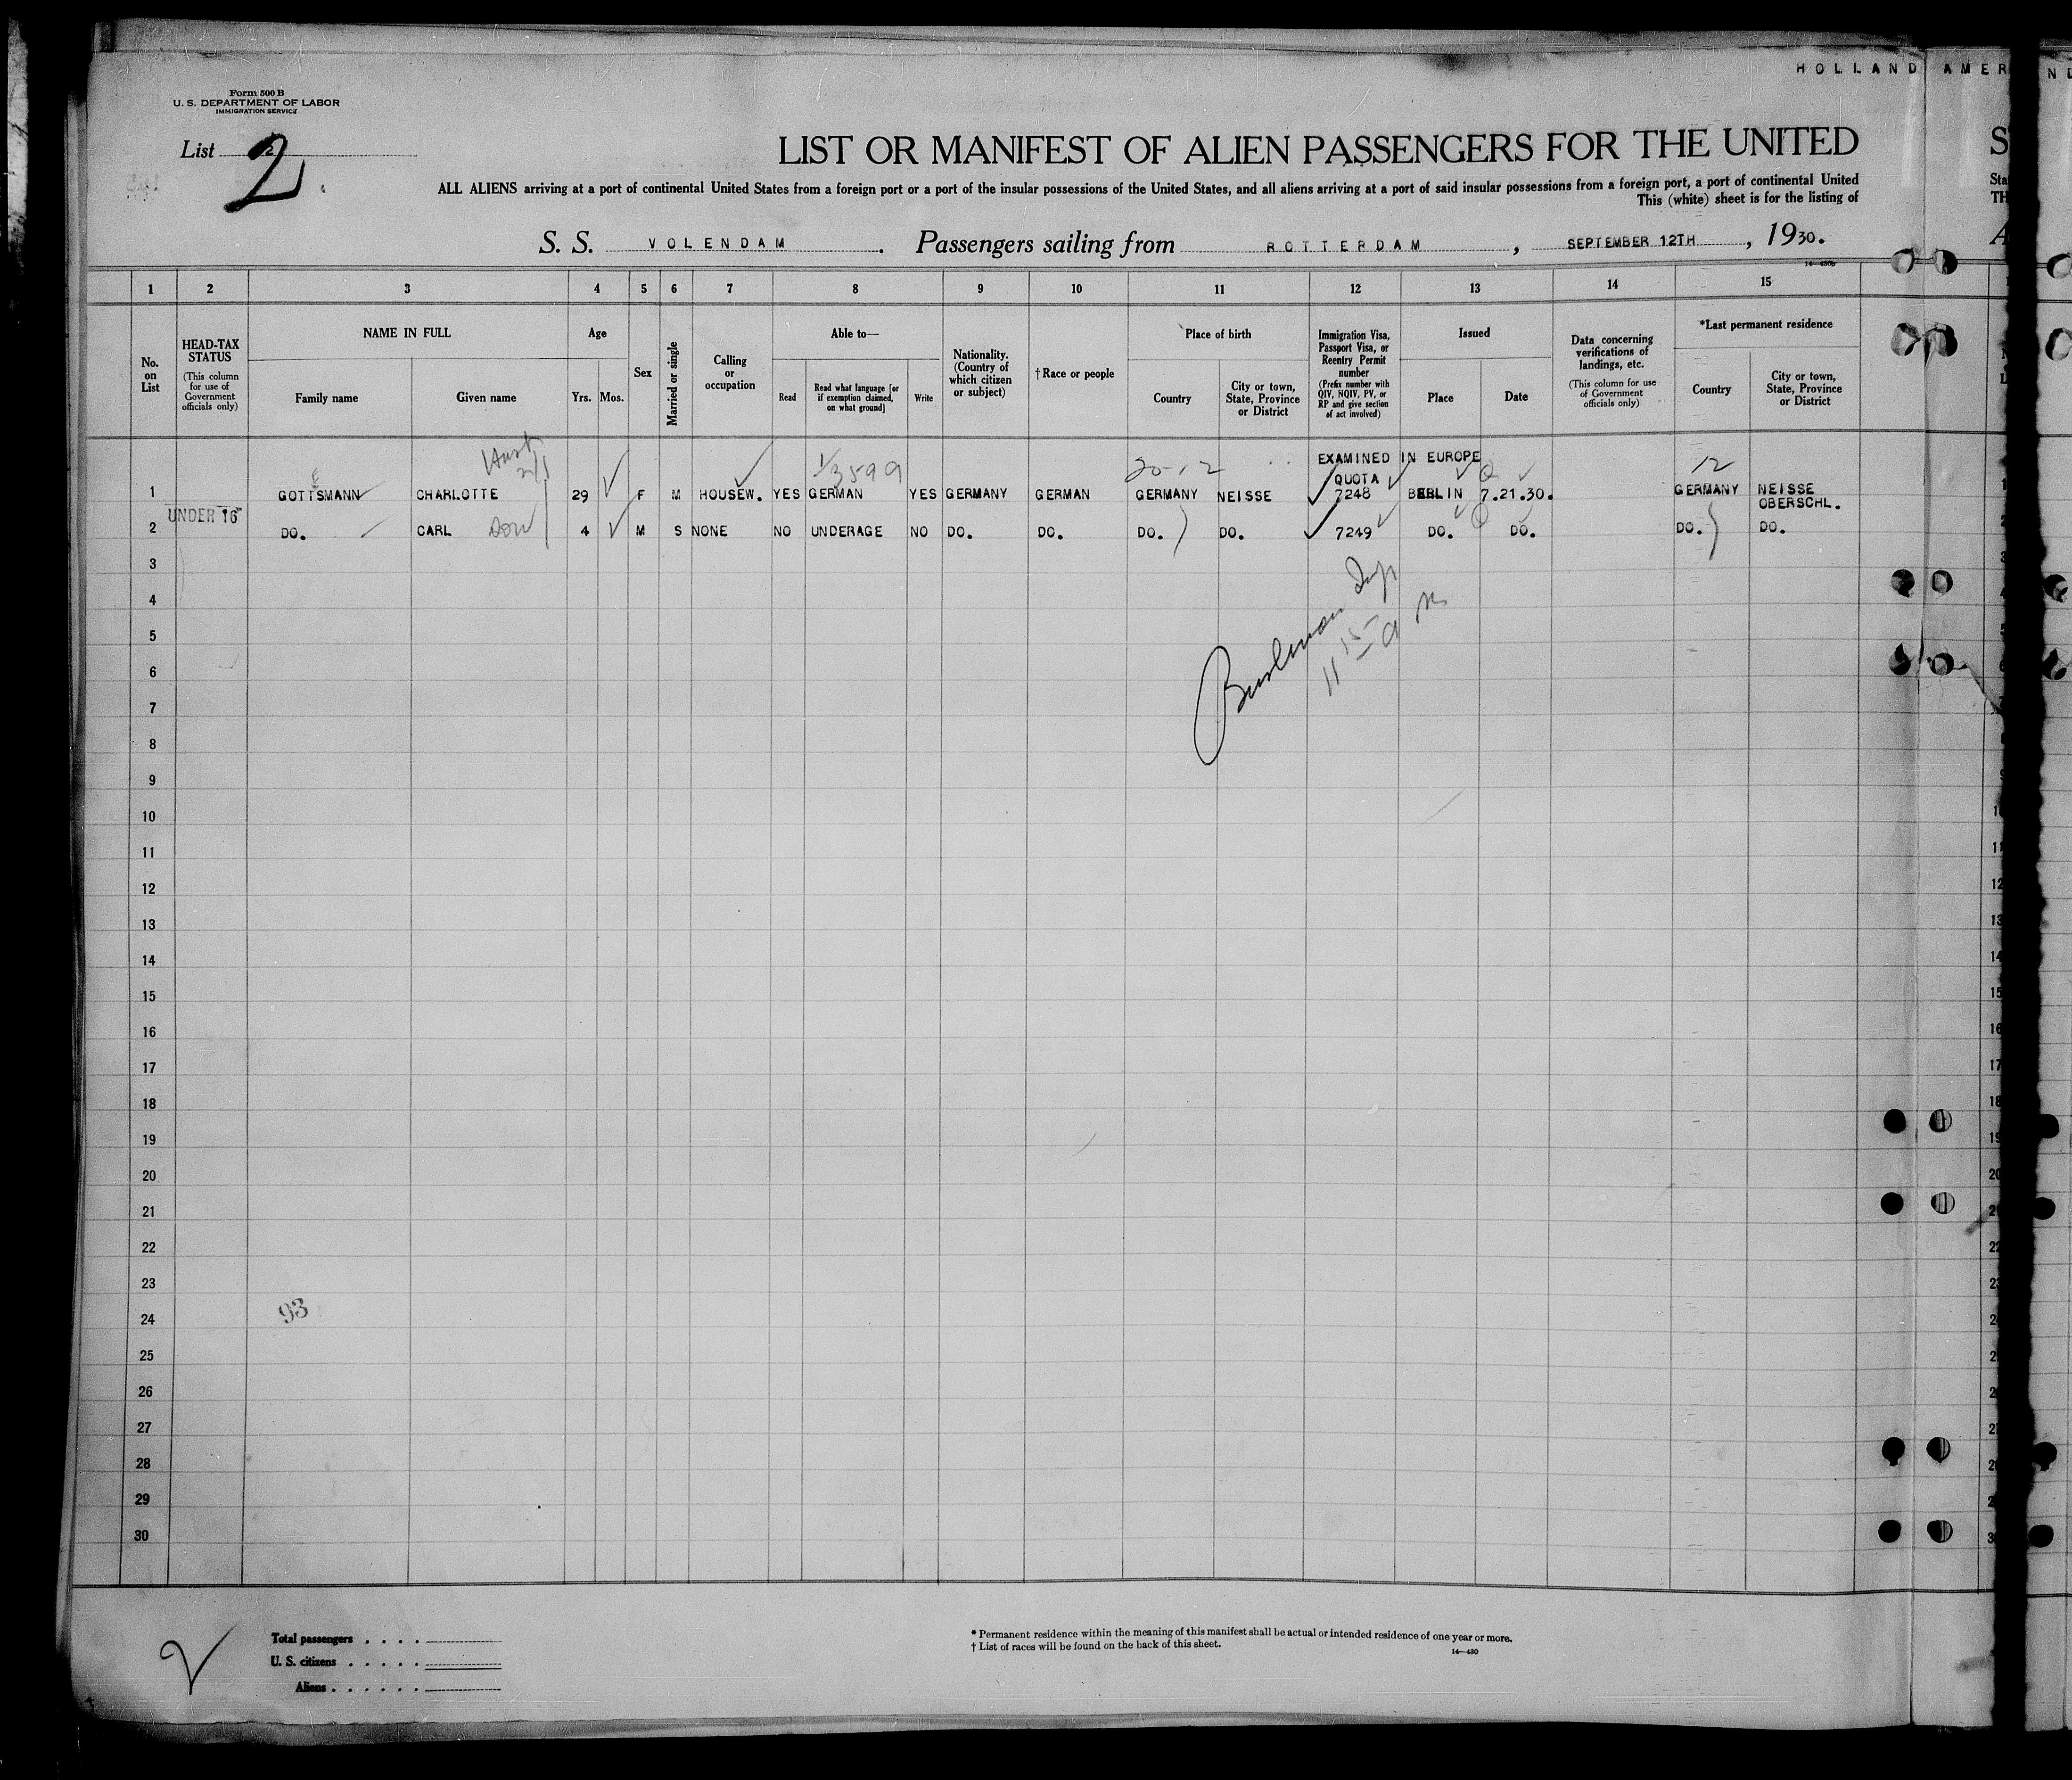 HOLLAND AMER
Form 500 B
U. S. DEPARTMENT OF LABOR
IMMIGRATION SERVICE
List 2
2
LIST OR MANIFEST OF ALIEN PASSENGERS FOR THE UNITED
ALL ALIENS arriving at a port of continental United States from a foreign port or a port of the insular possessions of the United States, and all aliens arriving at a port of said insular possessions from a foreign port, a port of continental United
This (white) sheet is for the listing of
S. S. VOLENDAM. Passengers sailing from ROTTERDAM, SEPTEMBER 12TH, 1930.
14—430b
1 2 3 4 5 6 7 8 9 10 11 12 13 14 15
No. on List
HEAD-TAX STATUS
(This column for use of Government officials only)
NAME IN FULL
Family name
Given name
Age
Yrs.
Mos.
Sex
Married or single
Calling or occupation
Able to—
Read
Read what language [or if exemption claimed, on what ground]
Write
Nationality. (Country of which citizen or subject)
†Race or people
Place of birth
Country
City or town, State, Province or District
Immigration Visa, Passport Visa, or Reentry Permit number
(Prefix number with QIV, NQIV, PV, or RP and give section of act involved)
Issued
Place
Date
Data concerning verifications of landings, etc.
(This column for use of Government officials only)
*Last permanent residence
Country
City or town, State, Province or District
EXAMINED IN EUROPE
1/3599
20-12
12
QUOTA
1 GOTTSMANN CHARLOTTE 29 F M HOUSEW. YES GERMAN YES GERMANY GERMAN GERMANY NEISSE 7248 BERLIN 7.21.30. GERMANY NEISSE
OBERSCHL.
UNDER 16
2 DO. CARL son 4 M S NONE NO UNDERAGE NO DO. DO. DO. DO. 7249 DO. DO. DO. DO.
3
4
5
6
7
8
9
10
11
12
13
14
15
16
17
18
19
20
21
22
23
93
24
25
26
27
28
29
30
Total passengers
U. S. citizens
Aliens
* Permanent residence within the meaning of this manifest shall be actual or intended residence of one year or more.
† List of races will be found on the back of this sheet.
14—430